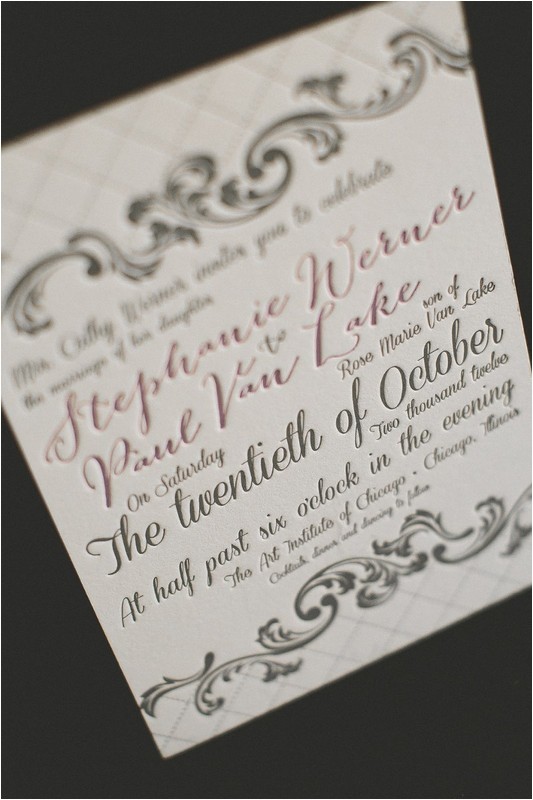 Mrs. Cathy Werner invites you to celebrate
the marriage of her daughter
Stephanie Werner
to
Paul Van Lake
son of
Rose Marie Van Lake
On Saturday
The twentieth of October
Two thousand twelve
At half past six o'clock in the evening
The Art Institute of Chicago • Chicago, Illinois
Cocktails, dinner, and dancing to follow